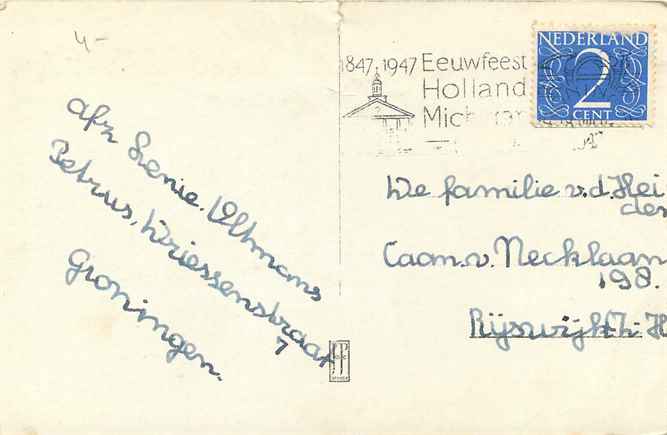 4-
afz Lenie. Oltmans
Petrus, Driessenstraat
7
Groningen.
1847.1947 Eeuwfeest
Holland
Mich
NEDERLAND
2
CENT
De familie v.d. Hei
den
Caan.v. Necklaan
198.
Rijswijk Z. H